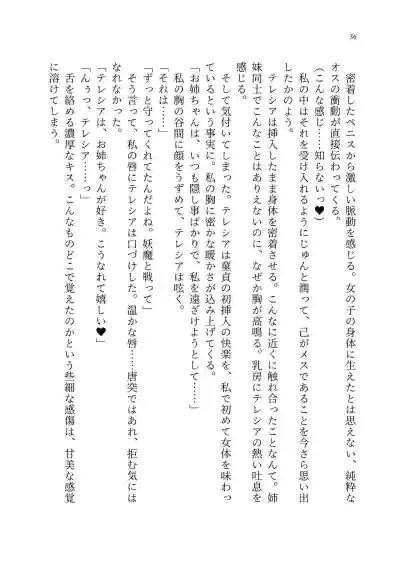 36
　密着したペニスから激しい脈動を感じる。女の子の身体に生えたとは思えない、純粋な
オスの衝動が直接伝わってくる。
（こんな感じ……知らないっ♥）
　私の中はそれを受け入れるようにじゅんと潤って、己がメスであることを今さら思い出
したかのよう。
　テレシアは挿入したまま身体を密着させる。こんなに近くに触れ合ったことなんて。姉
妹同士でこんなことはありえないのに、なぜか胸が高鳴る。乳房にテレシアの熱い吐息を
感じる。
　そして気付いてしまった。テレシアは童貞の初挿入の快楽を、私で初めて女体を味わっ
ているという事実に。私の胸に密かな暖かさが込み上げてくる。
「お姉ちゃんは、いつも隠し事ばかりで、私を遠ざけようとして……」
　私の胸の谷間に顔をうずめて、テレシアは呟く。
「それは……」
「ずっと守ってくれてたんだよね。妖魔と戦って」
　そう言って、私の唇にテレシアは口づけした。温かな唇……唐突ではあれ、拒む気には
なれなかった。
「テレシアは、お姉ちゃんが好き。こうなれて嬉しい♥」
「んぅっ、テレシア……っ」
　舌を絡める濃厚なキス。こんなものどこで覚えたのかという些細な感傷は、甘美な感覚
に溶けてしまう。